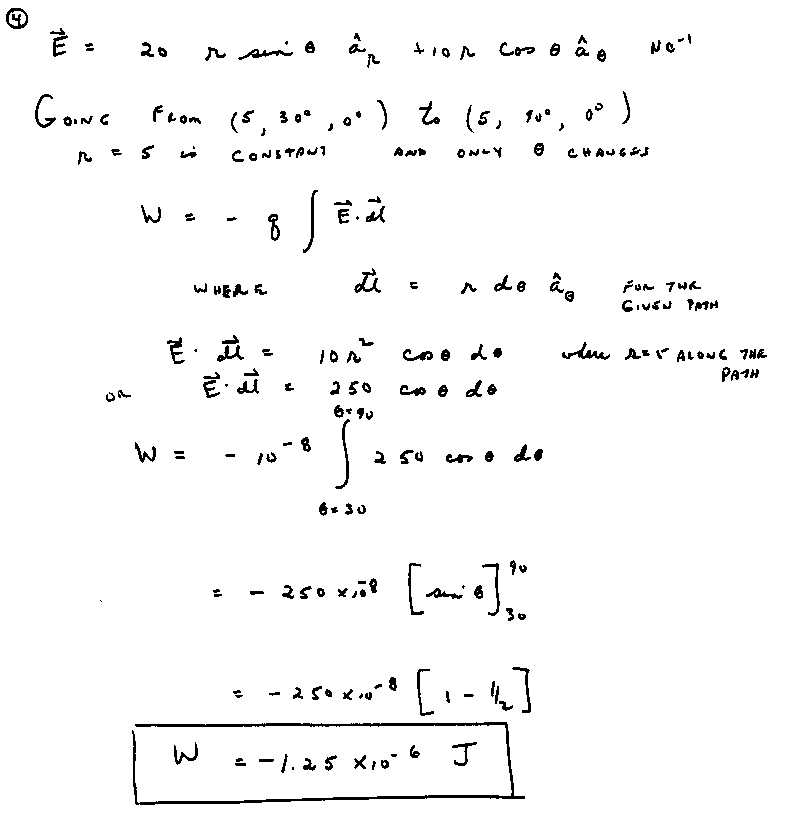 ④
E⃗ = 20 r sin θ â_r + 10 r cos θ â_θ NC⁻¹
GOING FROM (5, 30°, 0°) to (5, 90°, 0°)
r = 5 is CONSTANT AND ONLY θ CHANGES
W = - q ∫ E⃗ · dl⃗
WHERE dl⃗ = r dθ â_θ FOR THE
GIVEN PATH
E⃗ · dl⃗ = 10 r² cos θ dθ where r=5 ALONG THE
PATH
or E⃗ · dl⃗ = 250 cos θ dθ
θ=90
W = - 10⁻⁸ ∫ 250 cos θ dθ
θ=30
= - 250 x10⁻⁸ [sin θ]₃₀⁹⁰
= - 250 x10⁻⁸ [1 - 1/2]
W = -1.25 x10⁻⁶ J